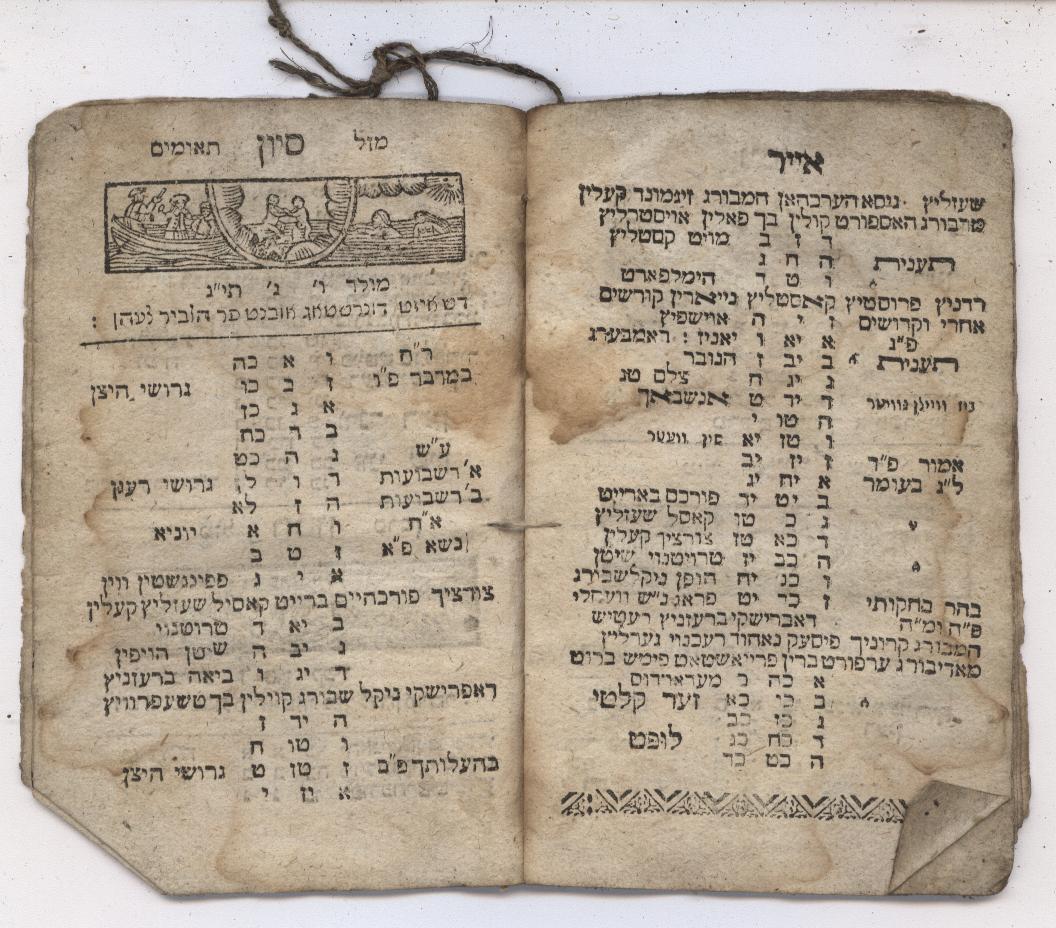 אייר
שעזליץ גיסא הערבהאן המבורג זיגמונד קעלין
מרבורג האספורט קולין בך פאלין אויסטרליץ
ד ז ב מויט קסטליץ
תענית ה ח ג
ו ט ד הימלפארט
רדניץ פרוסטיץ קאסטליץ נייארין קורשים
אחרי וקדושים ז י ה אוישפיץ
פ״ג א יא ו יאניו : ראמבערג
תענית ב יב ז הנובר
ג יג ח צלם טג
ד יד ט אנשבאך
ה טו י
ו טז יא פין וועטר
אמור פ״ד ז יז יב
ל״ג בעומר א יח יג
ב יט יד פורכם בארייט
ג כ טו קאסל שעזליץ
ד כא טז צורציך קעלין
ה כב יז טרויטנוי שיטן
ו כג יח הופן ניקלשבורג
בהר בחקותי ז כד יט פראג
פ״ה ימ״ה ראברישקי ברעזניץ רעטיש
המבורג קרוניך פיסעק נאהוד רעכנוי גערליץ
מאדיבורג ערפורט ברין פרייאשטאט פימש ברוט
א כה כ
ב כו כא זער קלטי
ג כז כב
ד כח כג לופט
ה כט כד
מזל סיון תאומים
מולד ו׳ ג׳ תי״ג
דש איזט דונרסטאג אובנט פר הלביר לעהן :
ר״ח ו א כה
במדבר פ״ו ז ב כו גרושי היצן
א ג כז
ב ד כח
ע״ש ג ה כט
א׳ דשבועות ד ו ל גרושי רעגן
ב׳ דשבועות ה ז לא
א״ח ו ח א יוניא
נשא פ״א ז ט ב
א י ג פפינגשטין ווין
צורציך פורכהיים ברייט קאסיל שעזליץ קעלין
ב יא ד טרוטנוי
ג יב ה שיטן הויפין
ד יג ו ביאה ברעזניץ
ראפרישקי ניקל שבורג קווילין בך טשעפרוויץ
ה יד ז
ו טו ח
בהעלותך פ״ב ז טז ט גרושי היצן
א יז י